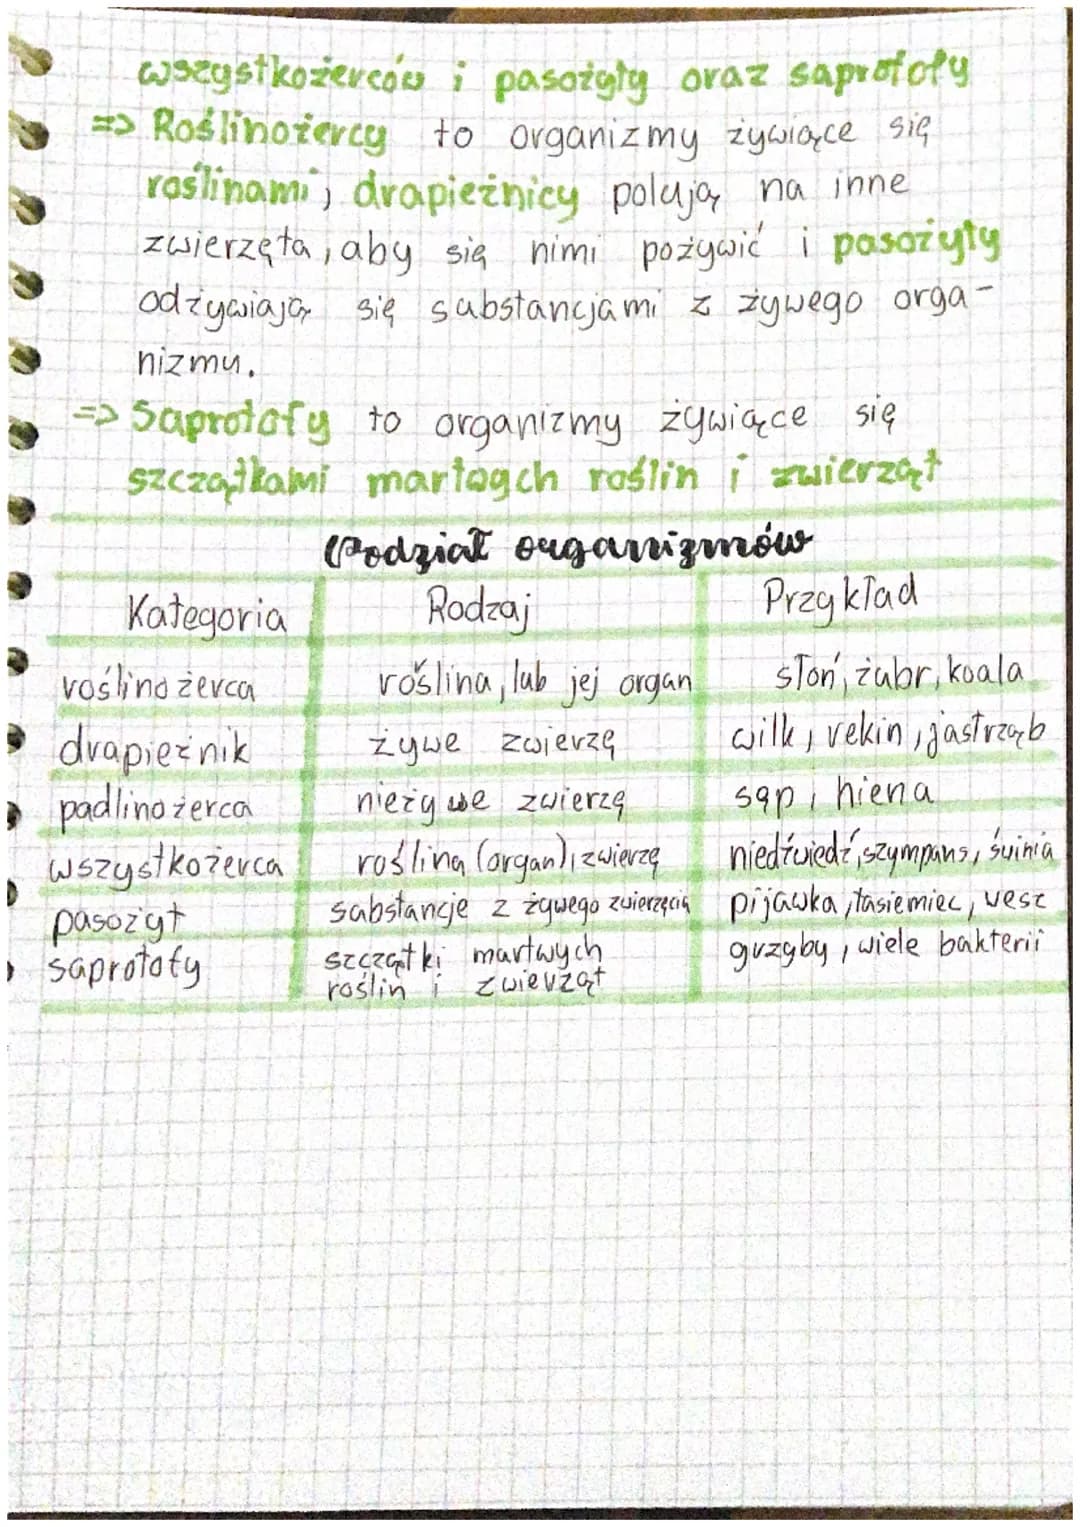 wszystkożerców i pasożyty oraz saprofofy
=> Roślinożercy to organizmy żywiące się
roślinami, drapieżnicy polują na inne
zwierzęta, aby się nimi pożywić i pasożyty
odżywiają się substancjami z żywego orga-
nizmu.
=> Saprotofy to organizmy żywiące się
szczątkami martwych roślin i zwierząt
Podział organizmów
Kategoria Rodzaj Przykład
roślinożerca roślina, lub jej organ słoń, żubr, koala
drapieżnik żywe zwierzę wilk, rekin, jastrząb
padlinożerca nieżywe zwierzę sęp, hiena
wszystkożerca roślina (organ), zwierzę niedźwiedź, szympans, świnia
pasożyt substancje z żywego zwierzęcia pijawka, tasiemiec, wesz
saprotofy szczątki martwych grzyby, wiele bakterii
roślin i zwierząt